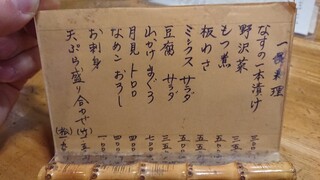 一品料理
なすの一本漬け 三〇〇
野沢菜 三五〇
もつ煮 五〇〇
板わさ 五〇〇
ミックスサラダ 五五〇
豆腐サラダ 五五〇
山かけまぐろ 七〇〇
月見トロロ 四〇〇
なめこおろし 四〇〇
お刺身
天ぷら盛り合わせ(竹)
(松)